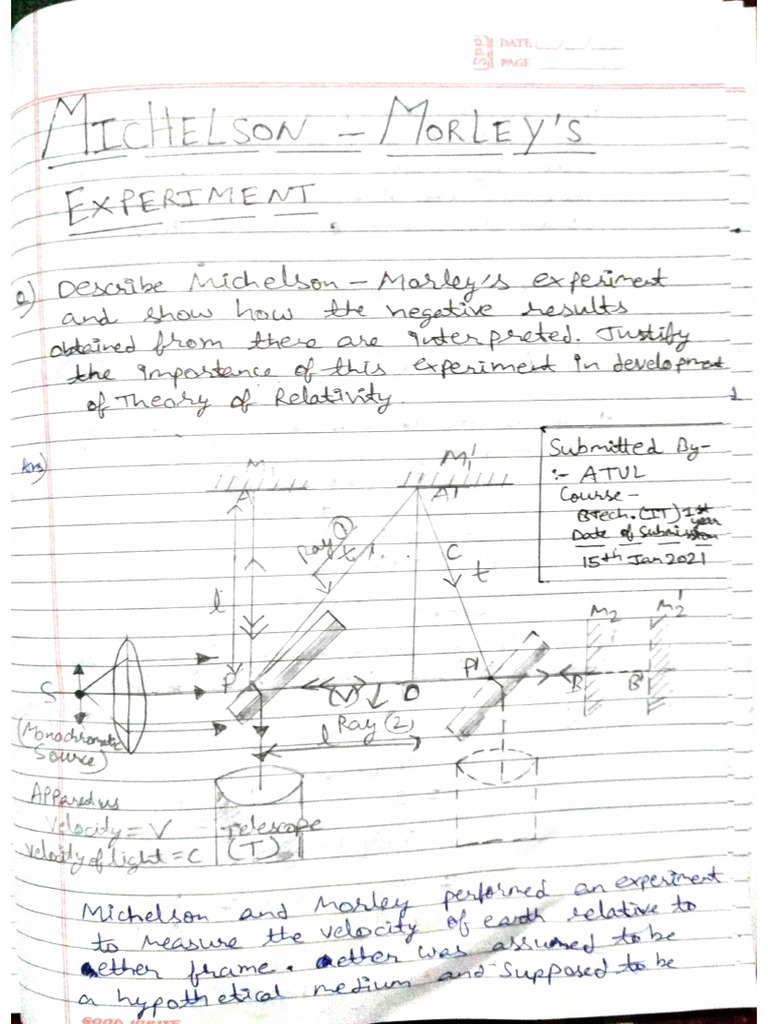 DATE: __/__/__
PAGE
MICHELSON - MORLEY'S
EXPERIMENT
Q) Describe Michelson - Morley's experiment
and show how the negetive results
obtained from there are interpreted. Justify
the importence of this experiment in development
of Theory of Relativity.
1
Ans)
Submitted By-
:- ATUL
Course -
BTech. (IT) 1st year
Date of Submission
15th Jan 2021
M
M'1
A
A'
Ray ①
C
t
l
M2
M2'
S
P
P'
(V)
O
B
B'
Ray (2)
l
(Monochromatic
Source)
Apparedus
velocity = V
velocity of light = C
Telescope
(T)
Michelson and Morley performed an experiment
to measure the velocity of earth relative to
aether frame. Aether was assumed to be
a hypothetical medium and supposed to be